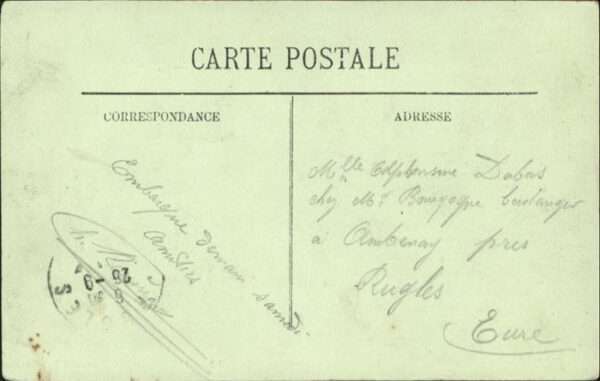 CARTE POSTALE
CORRESPONDANCE
ADRESSE
Embarque demain samedi
Amitiés
Mlle Alphonsine Dubas
chez Mr Bourgogne boulanger
à Ambenay pres
Rugles
Eure